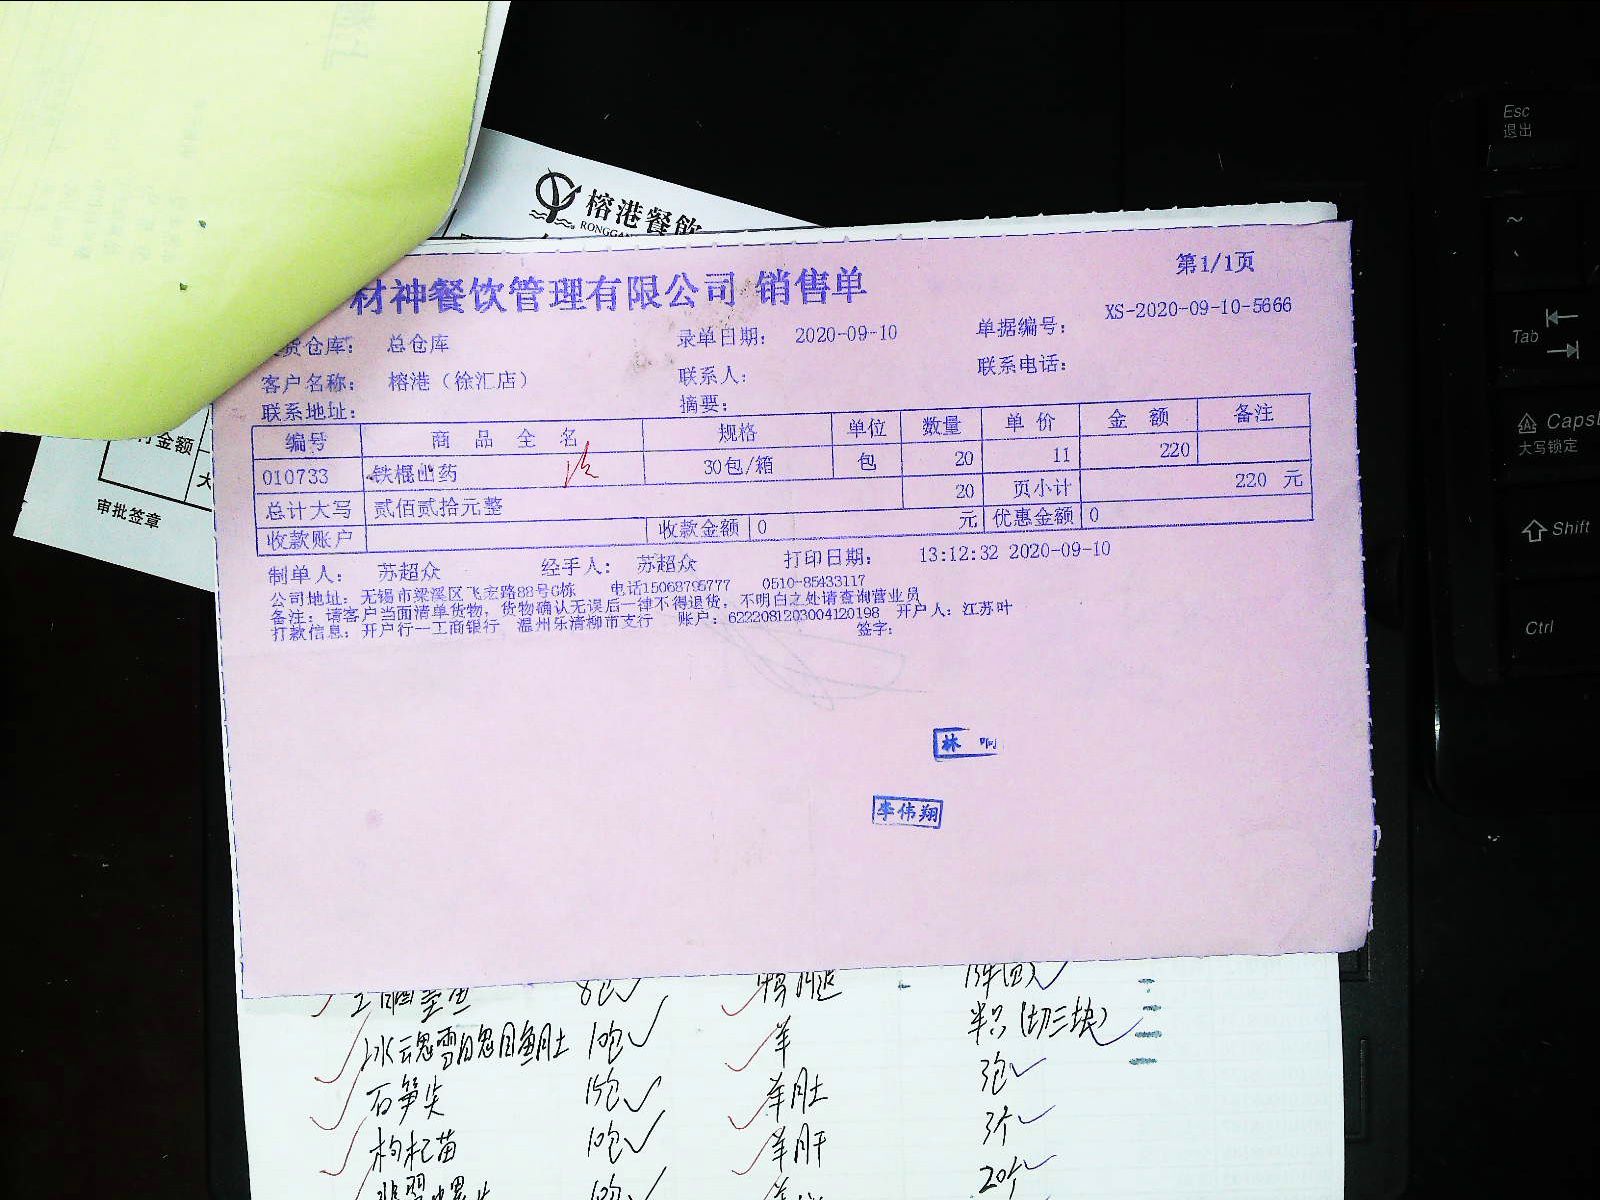 榕港餐饮
材神餐饮管理有限公司 销售单
第1/1页
货仓库： 总仓库 录单日期： 2020-09-10 单据编号： XS-2020-09-10-5666
客户名称： 榕港（徐汇店） 联系人： 联系电话：
联系地址： 摘要：
编号 商品全名 规格 单位 数量 单价 金额 备注
010733 铁棍山药 30包/箱 包 20 11 220
总计大写 贰佰贰拾元整 20 页小计 220 元
收款账户 收款金额 0 元 优惠金额 0
制单人： 苏超众 经手人： 苏超众 打印日期： 13:12:32 2020-09-10
公司地址：无锡市梁溪区飞宏路88号G栋 电话15068795777 0510-85433117
备注：请客户当面清单货物，货物确认无误后一律不得退货，不明白之处请查询营业员
打款信息：开户行一工商银行 温州乐清柳市支行 账户：6222081203004120198 开户人：江苏叶
签字：
付金额
大
审批签章
林 响
李伟翔
8包
10包 羊 半只(切三块)
石笋尖 15包 羊肚 3包
枸杞苗 10包 羊肝 3个
10包 20个
Esc
退出
~
Tab
Caps
大写锁定
Shift
Ctrl